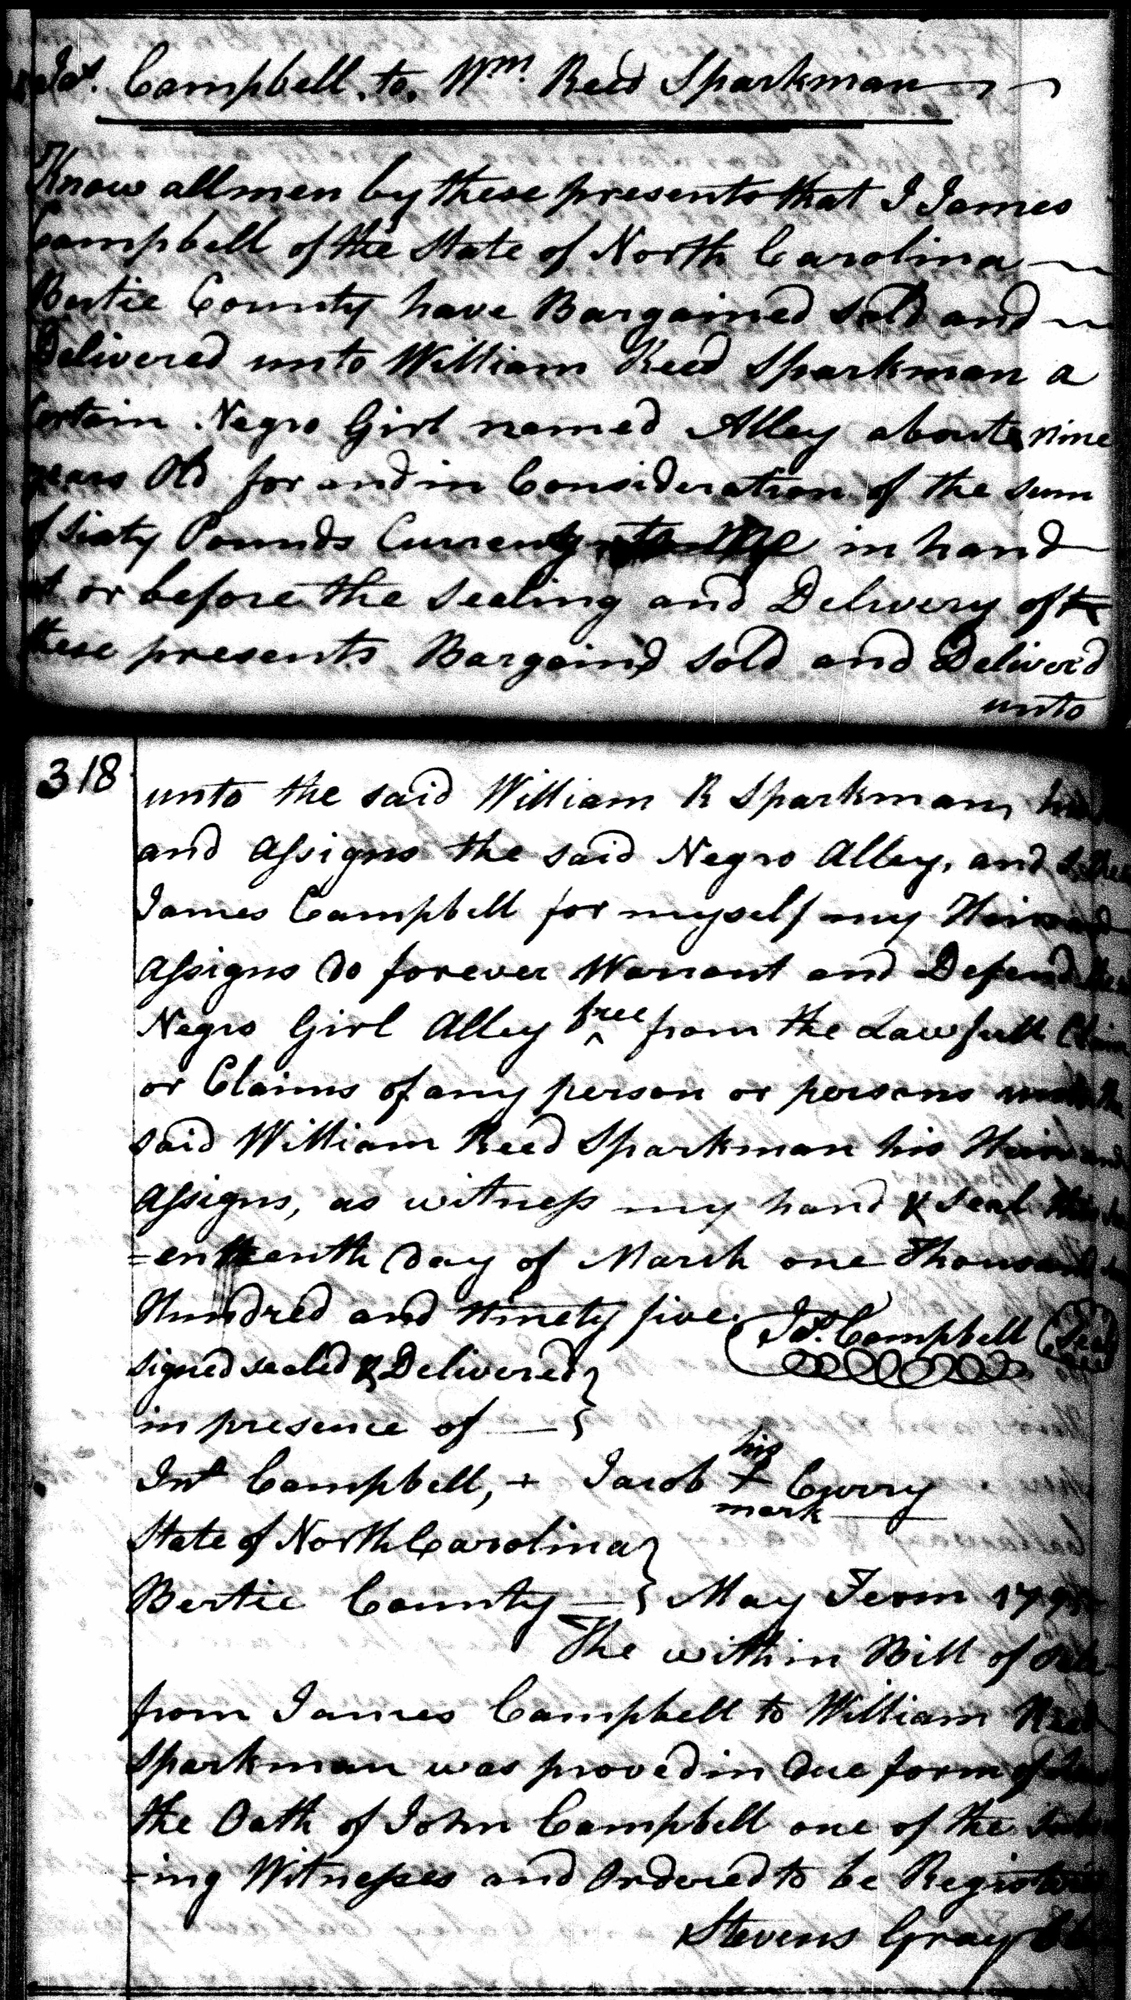 Jas. Campbell to Wm. Reed Sparkman
Know all men by these presents that I James
Campbell of the State of North Carolina
Bertie County have Bargained sold and
Delivered unto William Reed Sparkman a
Certain Negro Girl named Alley about nine
years Old for and in Consideration of the sum
of sixty Pounds Currency in hand
at or before the sealing and Delivery of
these presents Bargain'd sold and Deliver'd
unto
318
unto the said William R Sparkman his
and assigns the said Negro Alley, and
James Campbell for myself my Heirs and
assigns do forever Warrant and Defend the
Negro Girl Alley free from the Lawfull Claim
or Claims of any person or persons unto the
said William Reed Sparkman his Heirs and
assigns, as witness my hand & seal this
=enteenth day of March one Thousand
Hundred and Ninety five. Jas. Campbell Seal
signed sealed & Delivered
in presence of
Jno Campbell, + Jacob his + mark Curry
State of North Carolina
Bertie County May Term 1795
The within Bill of Sale
from James Campbell to William Reed
Sparkman was proved in due form of Law
the Oath of John Campbell one of the
=ing Witnesses and Ordered to be Registered
Stevens Gray